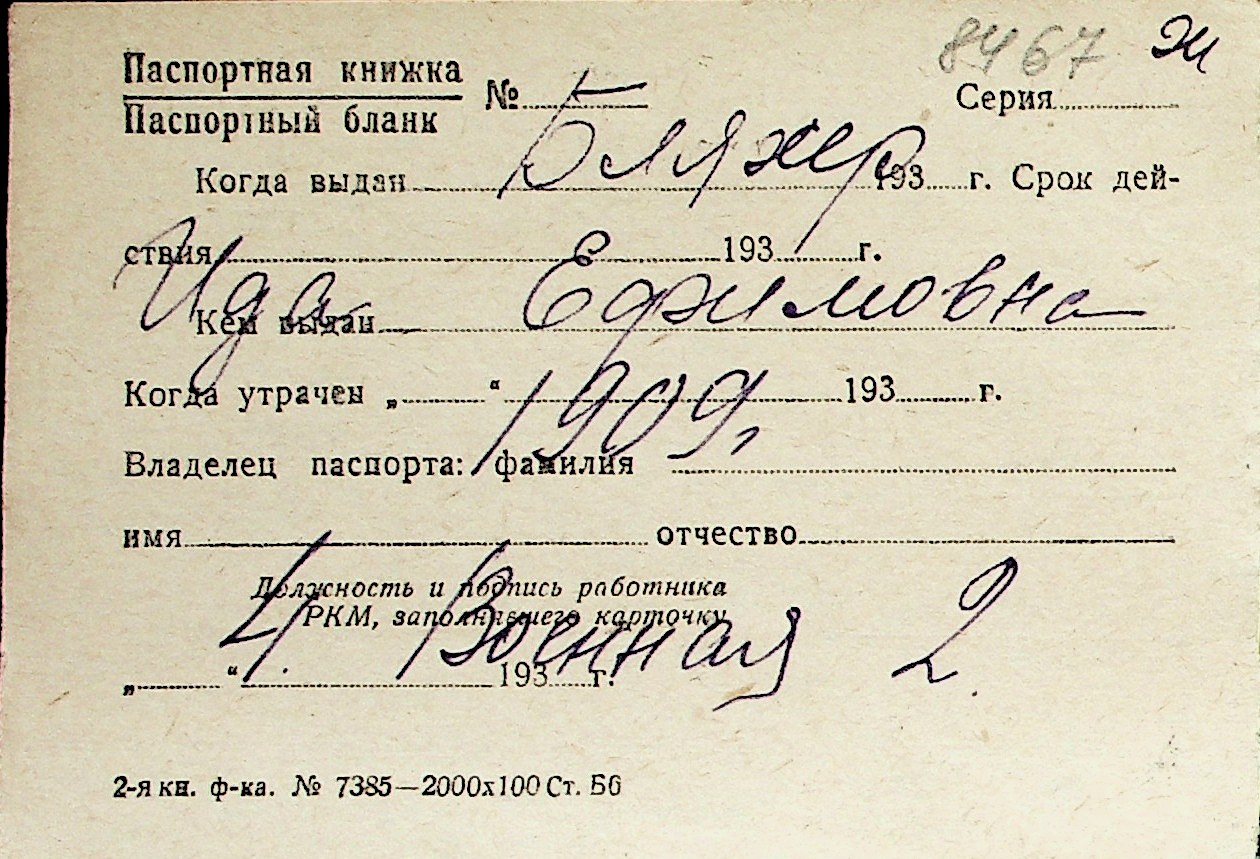 8467 Эи
Паспортная книжка
Паспортный бланк
№ Серия
Бляхер
Когда выдан 193 г. Срок дей-
ствия 193 г.
Ида Ефимовна
Кем выдан
Когда утрачен „ “ 193 г.
1909,
Владелец паспорта: фамилия
имя отчество
Должность и подпись работника
РКМ, заполнявшего карточку
4. Военная 2.
„ “ 193 г.
2-я кн. ф-ка. № 7385—2000х100 Ст. Б6